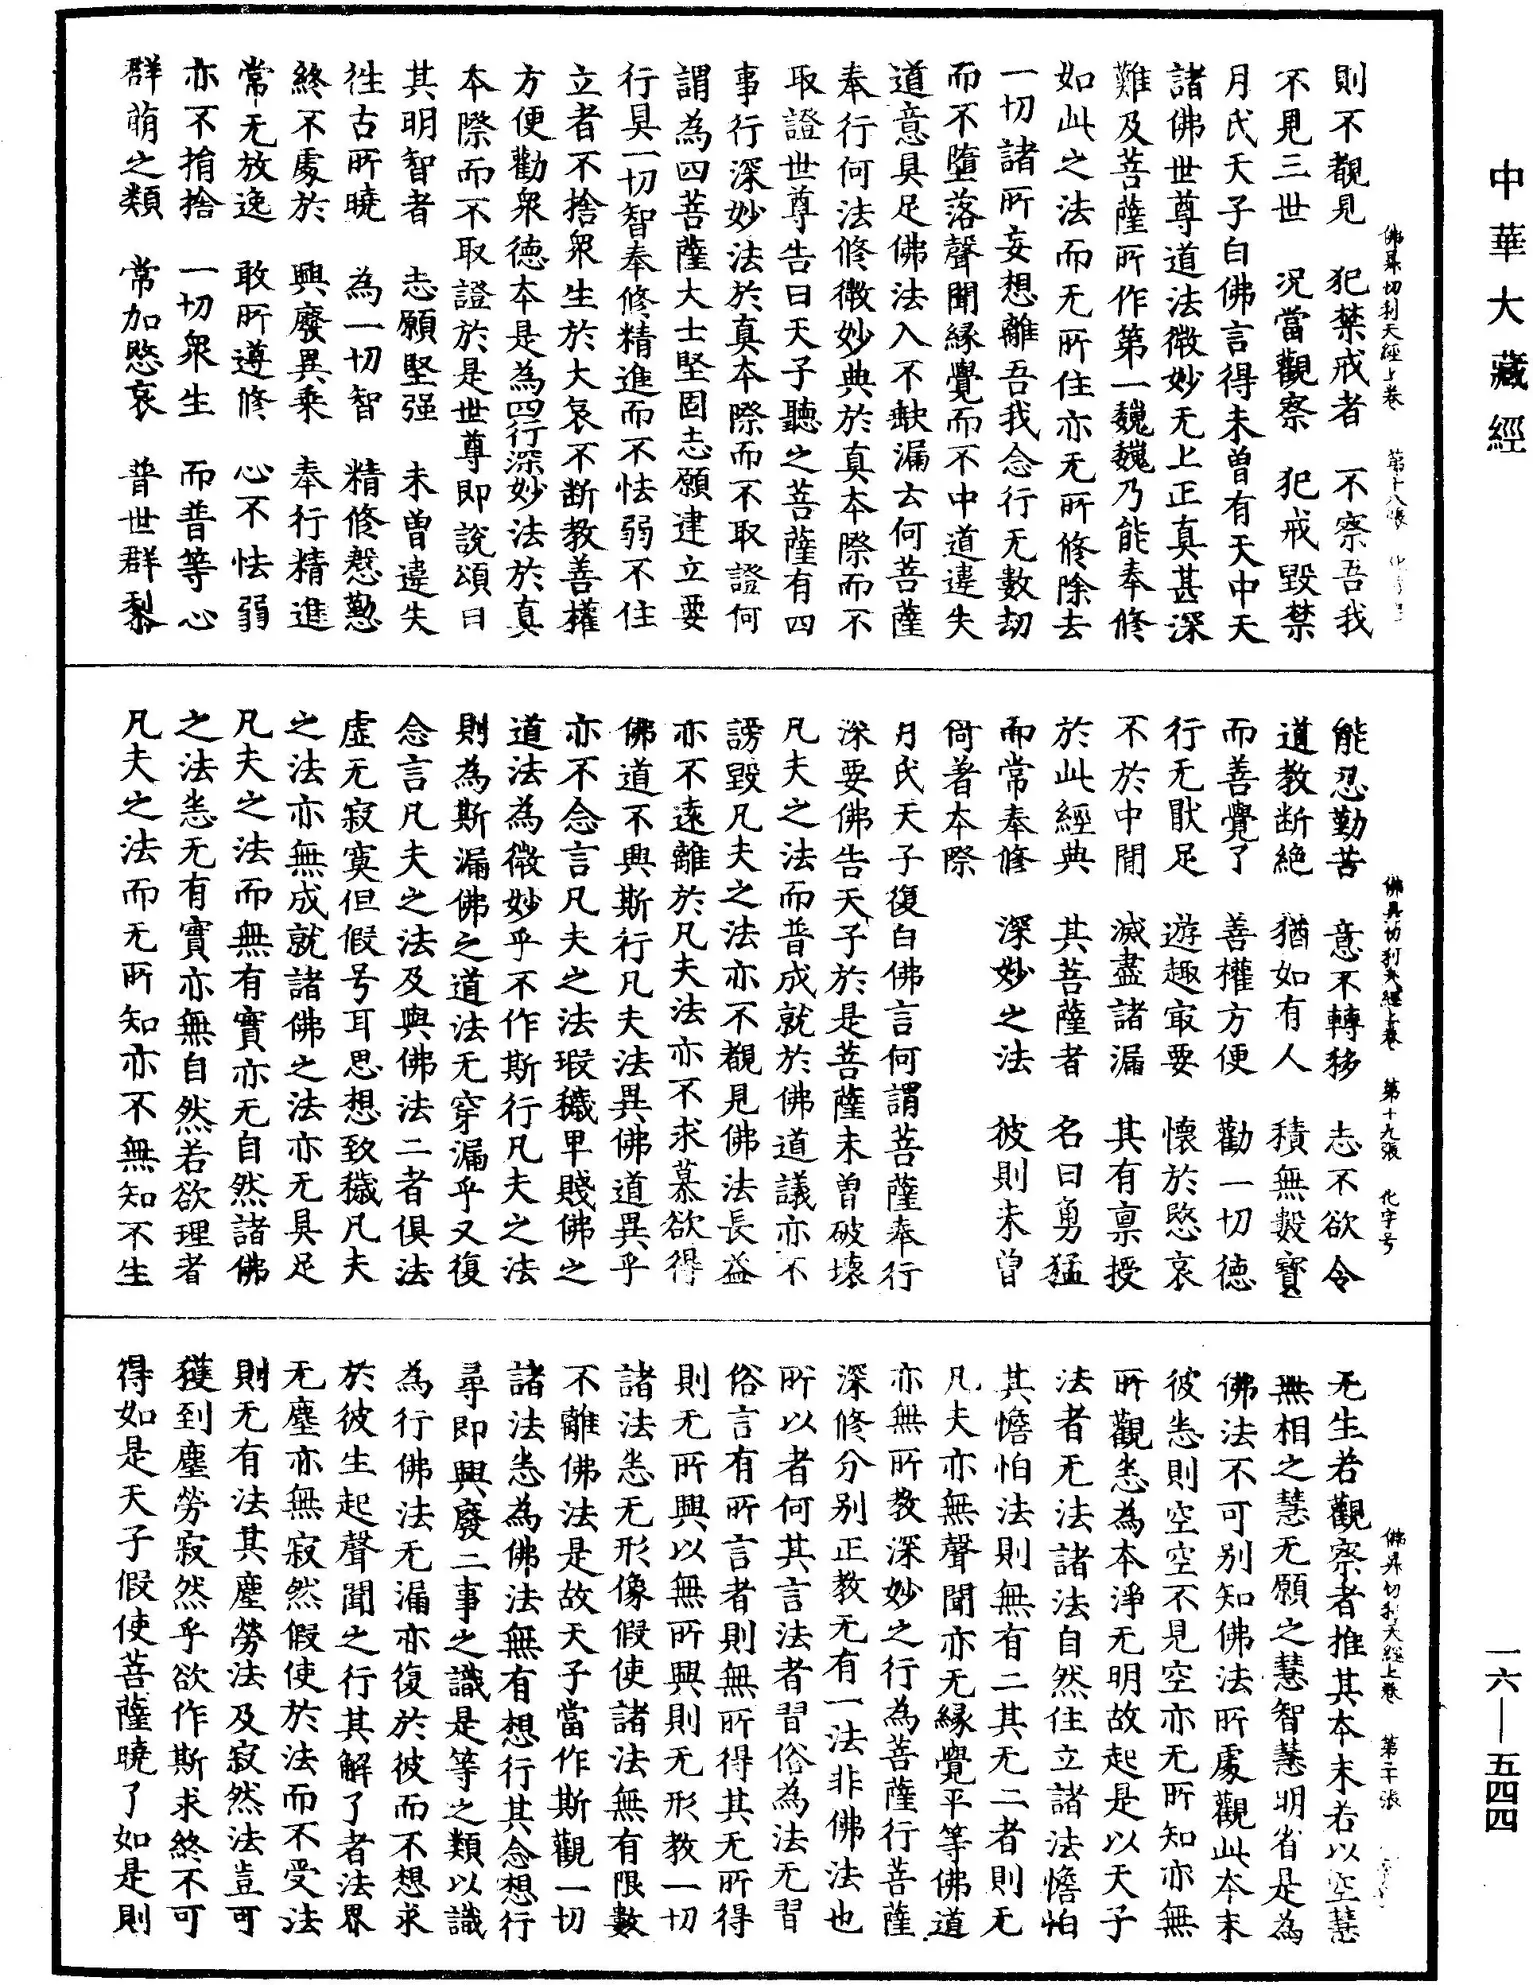 中華大藏經
佛昇忉利天經上卷 第十八張 化字号
則不覩見 犯禁戒者 不察吾我
不見三世 況當觀察 犯戒毀禁
月氏天子白佛言得未曾有天中天
諸佛世尊道法微妙无上正真甚深
難及菩薩所作第一巍巍乃能奉修
如此之法而无所住亦无所修除去
一切諸所妄想離吾我念行无數劫
而不墮落聲聞緣覺而不中道違失
道意具足佛法入不缺漏去何菩薩
奉行何法修微妙典於真本際而不
取證世尊告曰天子聽之菩薩有四
事行深妙法於真本際而不取證何
謂為四菩薩大士堅固志願建立要
行具一切智奉修精進而不怯弱不住
立者不捨衆生於大哀不断教善權
方便勸衆德本是為四行深妙法於真
本際而不取證於是世尊即說頌曰
其明智者 志願堅强 未曾違失
徃古所曉 為一切智 精修慇懃
終不處於 興廢異乗 奉行精進
常无放逸 敢所遵修 心不怯弱
亦不捐捨 一切衆生 而普等心
群萌之類 常加愍哀 普世群黎
佛昇忉利天經上卷 第十九張 化字号
能忍勤苦 意不轉移 志不欲令
道教断絕 猶如有人 積無數寶
而善覺了 善權方便 勸一切德
行无猒足 遊趣㝡要 懷於愍哀
不於中閒 滅盡諸漏 其有禀授
於此經典 其菩薩者 名曰勇猛
而常奉修 深妙之法 彼則未曾
倚著本際
月氏天子復白佛言何謂菩薩奉行
深要佛告天子於是菩薩未曾破壞
凡夫之法而普成就於佛道議亦不
謗毀凡夫之法亦不覩見佛法長益
亦不遠離於凡夫法亦不求慕欲得
佛道不興斯行凡夫法異佛道異乎
亦不念言凡夫之法瑕穢卑賤佛之
道法為微妙乎不作斯行凡夫之法
則為斯漏佛之道法无穿漏乎又復
念言凡夫之法及與佛法二者俱法
虛无寂寞但假号耳思想致穢凡夫
之法亦無成就諸佛之法亦无具足
凡夫之法而無有實亦无自然諸佛
之法悉无有實亦無自然若欲理者
凡夫之法而无所知亦不無知不生
佛昇忉利天經上卷 第二十張
无生若觀察者推其本末若以空慧
無相之慧无願之慧智慧明省是為
佛法不可別知佛法所處觀此本末
彼悉則空空不見空亦无所知亦無
所觀悉為本淨无明故起是以天子
法者无法諸法自然住立諸法憺怕
其憺怕法則無有二其无二者則无
凡夫亦無聲聞亦无緣覺平等佛道
亦無所教深妙之行為菩薩行菩薩
深修分別正教无有一法非佛法也
所以者何其言法者習俗為法无習
俗言有所言者則無所得其无所得
則无所興以無所興則无形教一切
諸法悉无形像假使諸法無有限數
不離佛法是故天子當作斯觀一切
諸法悉為佛法無有想行其念想行
尋即興廢二事之識是等之類以識
為行佛法无漏亦復於彼而不想求
於彼生起聲聞之行其解了者法界
无塵亦無寂然假使於法而不受法
則无有法其塵勞法及寂然法豈可
獲到塵勞寂然乎欲作斯求終不可
得如是天子假使菩薩曉了如是則
一六—五四四